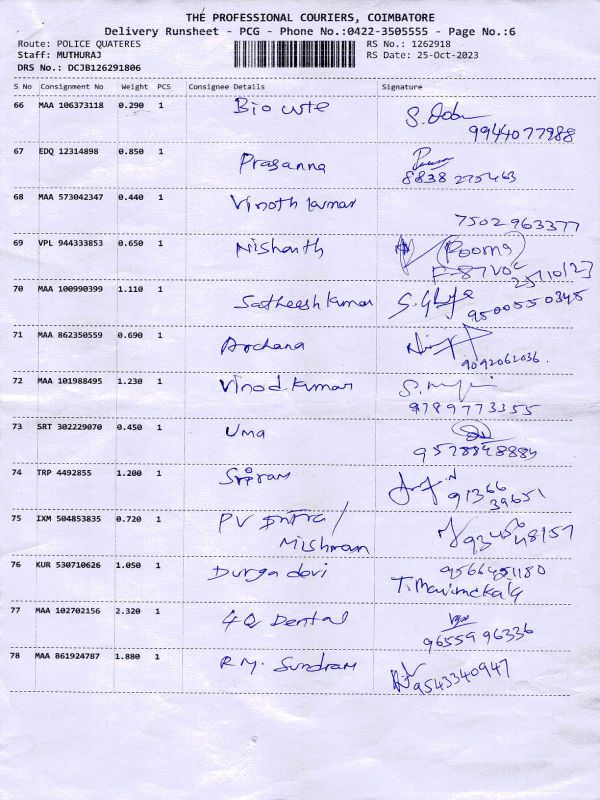 THE PROFESSIONAL COURIERS, COIMBATORE
Delivery Runsheet - PCG - Phone No.:0422-3505555 - Page No.:6
Route: POLICE QUATERES RS No.: 1262918
Staff: MUTHURAJ RS Date: 25-Oct-2023
DRS No.: DCJB126291806
S No Consignment No Weight PCS Consignee Details Signature
66 MAA 106373118 0.290 1 Bio cute
9944077988
67 EDQ 12314898 0.850 1 Prasanna
8838 275463
68 MAA 573042347 0.440 1 Vinoth kumar
7502963377
69 VPL 944333853 0.650 1 Nishanth
25/10/23
70 MAA 100990399 1.110 1 Satheesh kumar
9500550345
71 MAA 862350559 0.690 1 Archana
9092062036.
72 MAA 101988495 1.230 1 Vinod.kumar
9789773355
73 SRT 302229070 0.450 1 Uma
9528848884
74 TRP 4492855 1.200 1 Sriram
91366
39651
75 IXM 504853835 0.720 1 PV Intra /
Mishram
76 KUR 530710626 1.050 1 Durga devi 9566451180
77 MAA 102702156 2.320 1 4Q Dental
9655996336
78 MAA 861924787 1.880 1 R.M. Sundram
9543340947